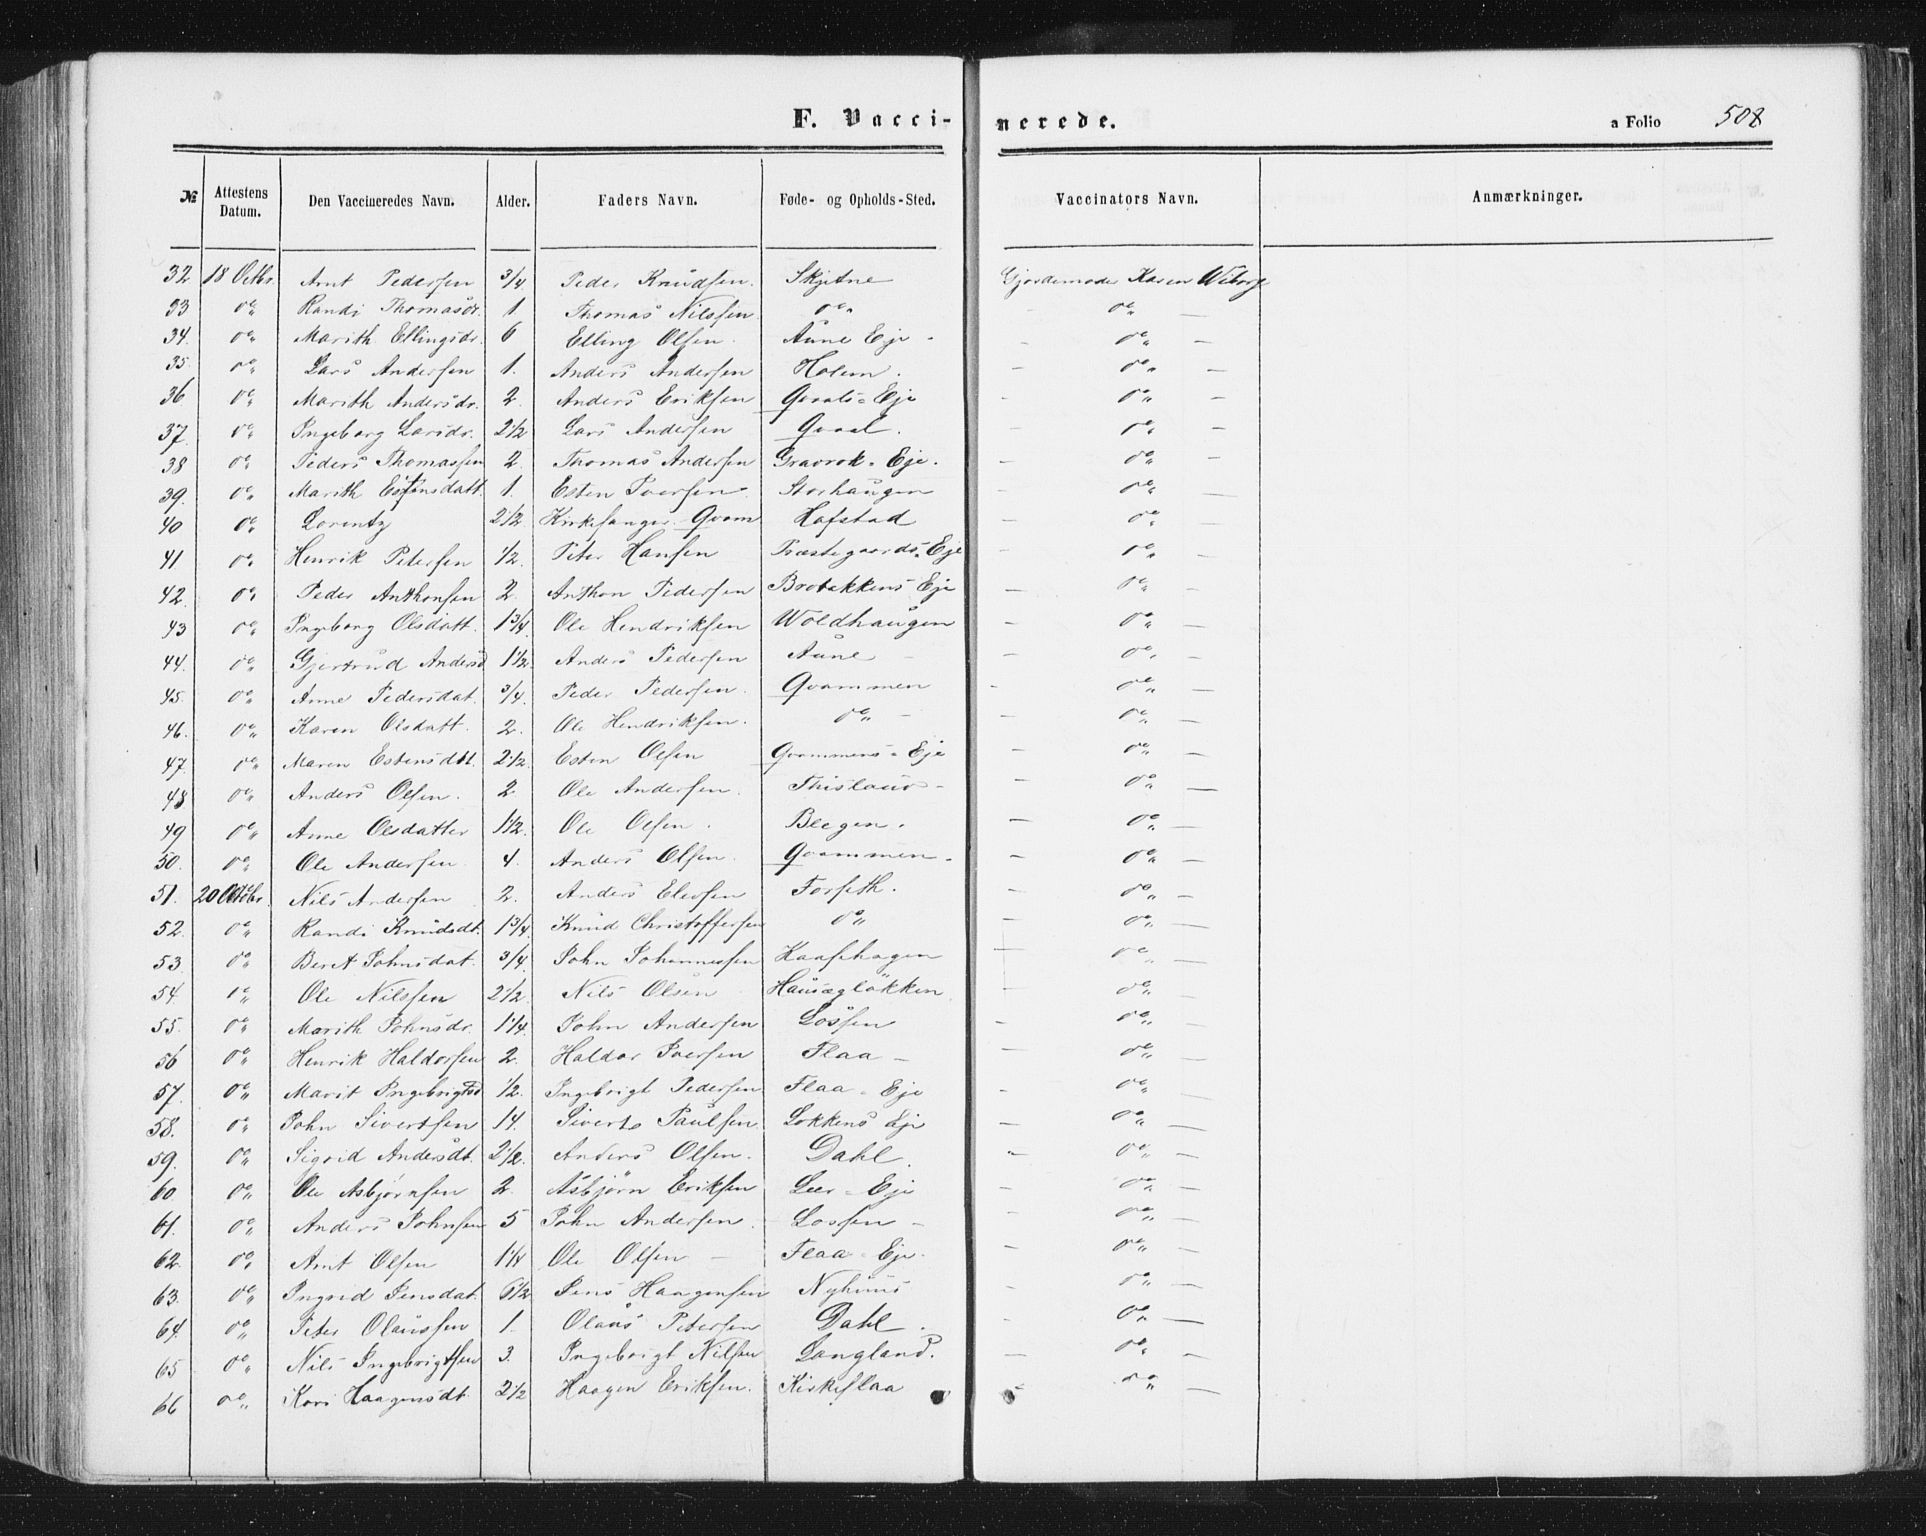 F. Vacci- nerede. a Folio 508
№ Attestens Datum. Den Vaccineredes Navn. Alder. Faders Navn. Føde- og Opholds-Sted. Vaccinators Navn. Anmærkninger.
32 18 Octbr Arnt Pedersen 3/4 Peder Knudsen. Skjetne Gjordemoder Karen Wiborg
33 do Randi Thomasdr. 1 Thomas Nilssen do — do —
34. do Marith Ellingsdr. 6 Elling Olsen. Aune Eje - — do —
35. do Lars Andersen 1. Anders Andersen Holem. — do —
36 do Marith Andersdr. 2. Anders Eriksen Qvals-Eje - do —
37. do Ingeborg Larsdr. 2 1/2 Lars Andersen Qvaal. - do —
38 do Peders Thomassen 2. Thomas Andersen Gravrok-Eje. — do —
39. do Marith Estensdatt. 1. Esten Iversen Storhaugen — do —
40 do Lorentz 2 1/2 Kirkesanger Qvam Hofstad — do —
41 do Henrik Petersen 1/2. Peter Hansen Præstegaards-Eje — do —
42. do Peder Anthonsen 2. Anthon Pedersen Brobakkens Eje — do —
43 do Ingeborg Olsdatt. 1 3/4 Ole Hendriksen Woldhaugen — do —
44. do Gjertrud Andersd 1 1/2 Anders Pedersen Aune — — do —
45. do Anne Pedersdat. 3/4. Peder Pedersen. Qvammen - do —
46. do Karen Olsdatt. 2. Ole Hendriksen. do — — do —
47. do Maren Estensdtt. 2 1/2. Esten Olsen Qvammens-Eje — do —
48 do Anders Olsen. 2 Ole Andersen. Thislaus- — do —
49 do Anne Olsdatter 1 1/2. Ole Olsen. Blegen. — do —
50. do Ole Andersen 4. Anders Olsen. Qvammen- — do —
51. 20 Octobr. Nils Andersen 2. Anders Elersen Forseth. — do —
52. do Randi Knudsdt. 1 3/4. Knud Christoffersen do — do —
53 do Beret Johnsdat. 3/4. John Johannessen Kaashagen — do —
54. do Ole Nilssen 2 1/2. Nils Olsen Hausægløkken — do —
55. do Marith Johnsdr. 1 1/4. John Andersen Lossen — do —
56 do Henrik Haldorsen 2. Haldor Iversen Flaa — — do —
57. do Marit Ingebrigtsd 1/2. Ingebrigt Pedersen Flaa-Eje — do —
58. do John Sivertsen 14. Siverts Paulsen Løkkens Eje — do —
59. do Sigrid Andersdt. 2 1/2. Anders Olsen. Dahl. — do —
60. do Ole Asbjørnsen 2. Asbjørn Eriksen Leer-Eje — do —
61. do Anders Johnsen 5 John Andersen. Lossen — — do —
62. do Arnt Olsen 1 1/4 Ole Olsen — Flaa-Eje. — do —
63. do Ingrid Jensdat. 6 1/2 Jens Haagensen Nyhuus — do —
64. do Peter Olaussen 1. Olaus Petersen Dahl. - do —
65 do Nils Ingebrigtsen 3. Ingebrigt Nilsen Langland. — do —
66 do Kari Haagensdt. 2 1/2 Haagen Eriksen. Kirkeflaa — do —